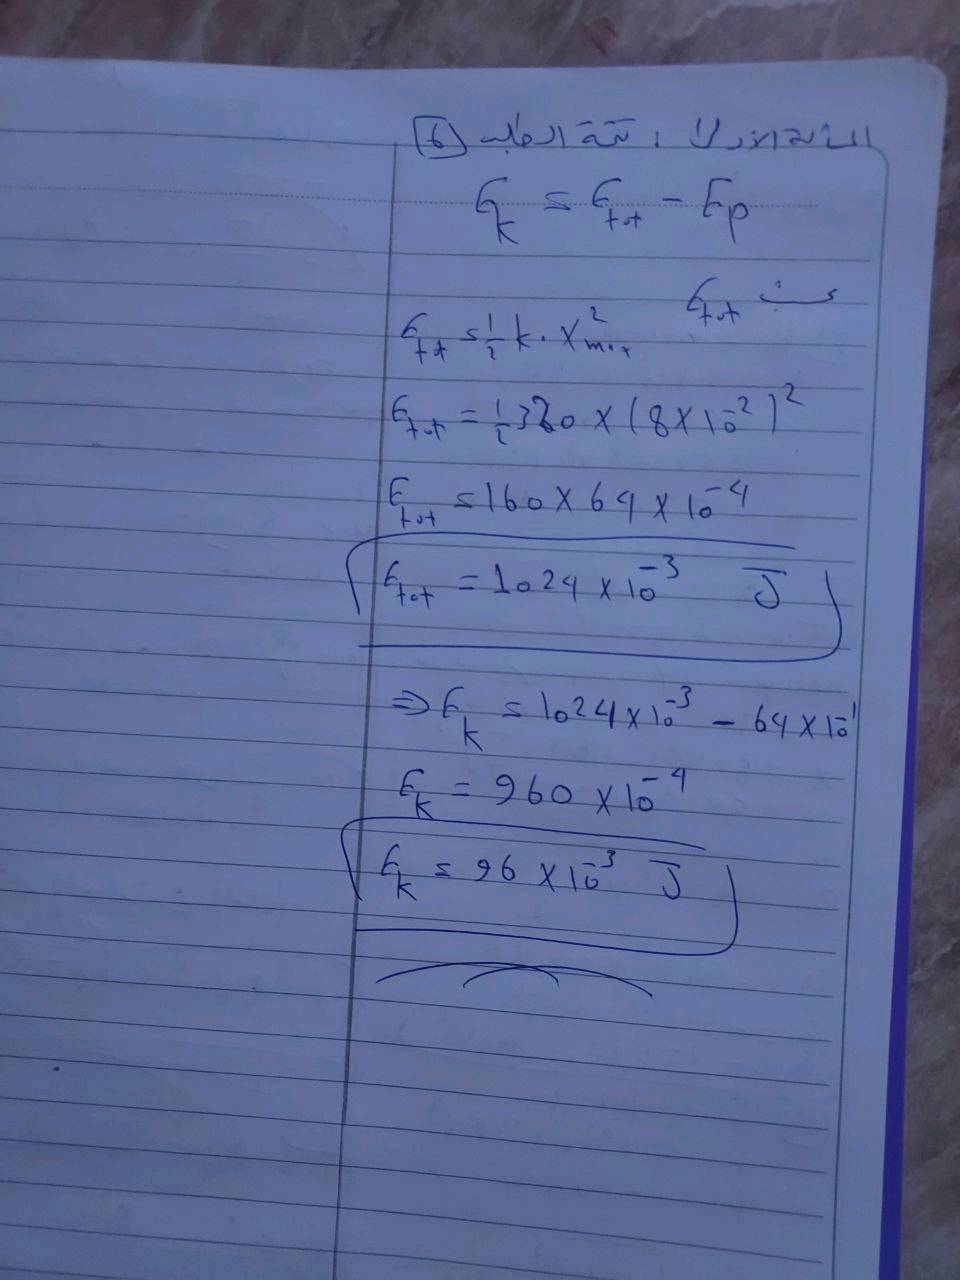 تتمة الطلب 6
E_k = E_tot - E_p
E_tot حسب
E_tot = 1/2 k . X²_max
E_tot = 1/2 320 × (8 × 10⁻²)²
E_tot = 160 × 64 × 10⁻⁴
E_tot = 1024 × 10⁻³ J
⇒ E_k = 1024 × 10⁻³ - 64 × 10⁻¹
E_k = 960 × 10⁻⁴
E_k = 96 × 10⁻³ J